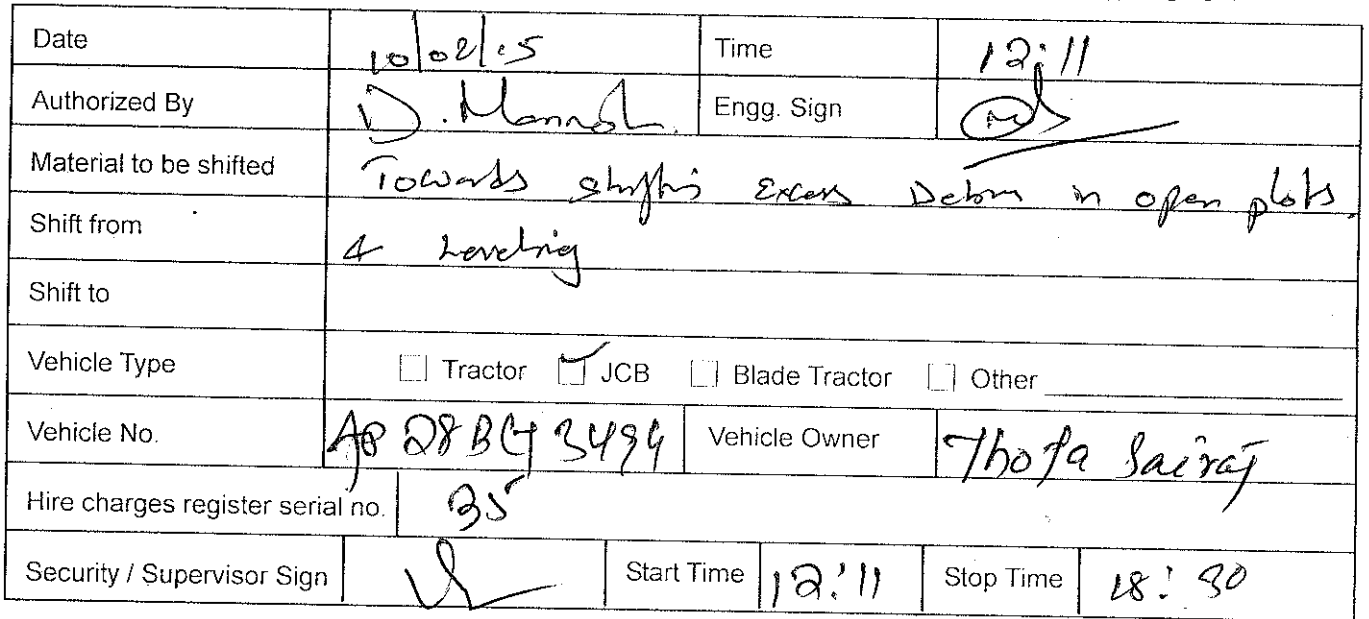 Date 10/02/15 Time 12:11
Authorized By D. Engg. Sign
Material to be shifted Towards shifting Excess Debris in open plots.
Shift from & Leveling
Shift to
Vehicle Type Tractor JCB Blade Tractor Other
Vehicle No. AP 28 BG 3494 Vehicle Owner Thota Sairaj
Hire charges register serial no. 35
Security / Supervisor Sign Start Time 12:11 Stop Time 18:30